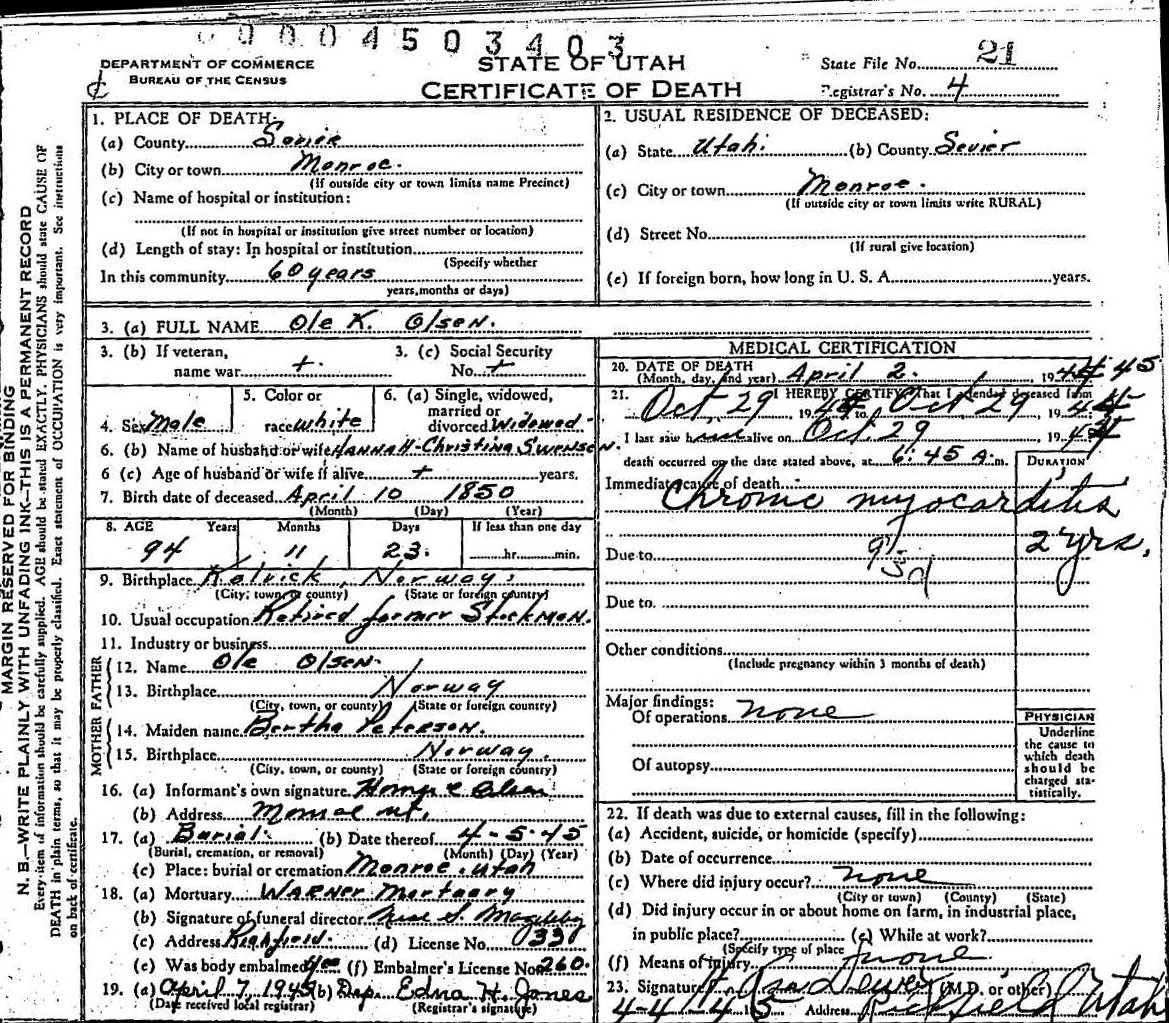 00004503403
DEPARTMENT OF COMMERCE
BUREAU OF THE CENSUS
STATE OF UTAH
CERTIFICATE OF DEATH
State File No. 21
Registrar's No. 4
MARGIN RESERVED FOR BINDING
N. B.—WRITE PLAINLY WITH UNFADING INK—THIS IS A PERMANENT RECORD
Every item of information should be carefully supplied. AGE should be stated EXACTLY. PHYSICIANS should state CAUSE OF
DEATH in plain terms, so that it may be properly classified. Exact statement of OCCUPATION is very important. See instructions
on back of certificate.
1. PLACE OF DEATH:
(a) County Sevier
(b) City or town Monroe.
(If outside city or town limits name Precinct)
(c) Name of hospital or institution:
(If not in hospital or institution give street number or location)
(d) Length of stay: In hospital or institution
(Specify whether
In this community 60 years
years, months or days)
2. USUAL RESIDENCE OF DECEASED:
(a) State Utah. (b) County Sevier
(c) City or town Monroe.
(If outside city or town limits write RURAL)
(d) Street No.
(If rural give location)
(e) If foreign born, how long in U. S. A. years.
3. (a) FULL NAME Ole K. Olsen.
3. (b) If veteran, name war +
3. (c) Social Security No. +
4. Sex Male
5. Color or race white
6. (a) Single, widowed, married or divorced Widowed
6. (b) Name of husband or wife HANNAH-Christina Swensen.
6 (c) Age of husband or wife if alive + years.
7. Birth date of deceased April 10 1850
(Month) (Day) (Year)
8. AGE Years Months Days If less than one day
94 11 23. hr. min.
9. Birthplace Kalvick, Norway.
(City, town, or county) (State or foreign country)
10. Usual occupation Retired farmer Stockman.
11. Industry or business
FATHER
12. Name Ole Olsen.
13. Birthplace Norway
(City, town, or county) (State or foreign country)
MOTHER
14. Maiden name Bertha Peterson.
15. Birthplace Norway.
(City, town, or county) (State or foreign country)
16. (a) Informant's own signature Olsen
(b) Address Monroe ut.
17. (a) Burial. (b) Date thereof 4-5-45
(Burial, cremation, or removal) (Month) (Day) (Year)
(c) Place: burial or cremation Monroe, Utah
18. (a) Mortuary WARNER Mortuary
(b) Signature of funeral director S. Magleby
(c) Address Richfield. (d) License No. 330
(e) Was body embalmed Yes (f) Embalmer's License No. 260.
19. (a) April 7, 1945 (b) Dep. Edna H. Jones
(Date received local registrar) (Registrar's signature)
MEDICAL CERTIFICATION
20. DATE OF DEATH
(Month, day, and year) April 2. 1944 45
21. I HEREBY CERTIFY That I attended deceased from
Oct 29 1944 to Oct 29 1944
I last saw him alive on Oct 29 1944
death occurred on the date stated above, at 6:45 A.m.
DURATION
Immediate cause of death
Chronic myocarditis
2 yrs.
Due to 93d
Due to
Other conditions
(Include pregnancy within 3 months of death)
Major findings:
Of operations none
Of autopsy
PHYSICIAN
Underline
the cause to
which death
should be
charged sta-
tistically.
22. If death was due to external causes, fill in the following:
(a) Accident, suicide, or homicide (specify)
(b) Date of occurrence
(c) Where did injury occur? none
(City or town) (County) (State)
(d) Did injury occur in or about home on farm, in industrial place,
in public place? (e) While at work?
(Specify type of place
(f) Means of injury none
23. Signature (M.D. or other)
4-4-45 Address Richfield Utah